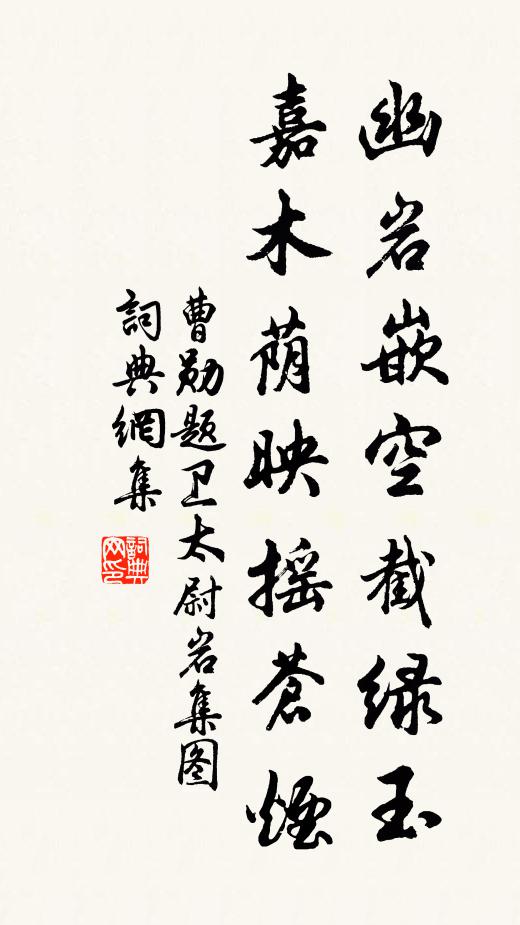 幽岩嵌空截绿玉
嘉木荫映摇苍煙
曹勋题卫太尉岩集图
詞典網集
詞典网印